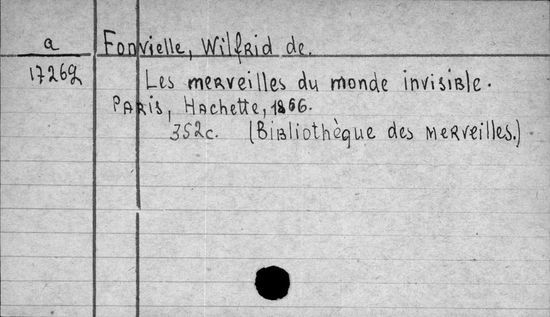 a Fonvielle, Wilfrid de.
17262 Les merveilles du monde invisible.
Paris, Hachette, 1866.
352c. (Bibliothèque des merveilles.)